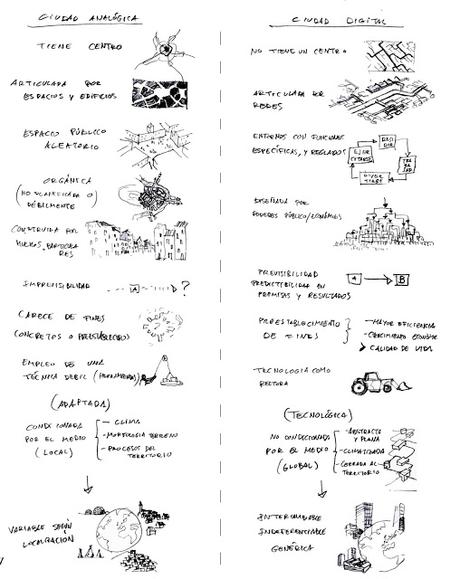 CIUDAD ANALÓGICA
TIENE CENTRO
ARTICULADA POR
ESPACIOS Y EDIFICIOS
ESPACIO PÚBLICO
ALEATORIO
ORGÁNICA
(NO PLANIFICADA O
DÉBILMENTE
CONSTRUIDA POR
MUCHOS, PARTICULA
RES
IMPREVISIBILIDAD
A
?
CARECE DE FINES
(CONCRETOS O PREESTABLECIDO)
EMPLEO DE UNA
TÉCNICA DEBIL
(ADAPTADA)
CONDICIONADA
POR EL MEDIO
(LOCAL)
- CLIMA
- MORFOLOGIA TERRENO
- PROCESOS DEL
TERRITORIO
VARIABLE SEGÚN
LOCALIZACIÓN
CIUDAD DIGITAL
NO TIENE UN CENTRO
ARTICULADA POR
REDES
ENTORNOS CON FUNCIONES
ESPECÍFICAS, Y REGLADOS
TRA
BA
JAR
DISEÑADA POR
PODERES PÚBLICO/ECONÓMICOS
PREVISIBILIDAD
PREDICTIBILIDAD EN
PREMISAS Y RESULTADOS
A
B
PREESTABLECIMIENTO
DE FINES
- MAYOR EFICIENCIA
- CRECIMIENTO ECONÓMICO
CALIDAD DE VIDA
TECNOLOGIA COMO
(TECNOLÓGICA)
NO CONDICIONADA
POR EL MEDIO
(GLOBAL)
- ABSTRACTA
Y PLANA
- CLIMATIZADA
- CERRADA AL
TERRITORIO
INDIFERENCIABLE
GENÉRICA